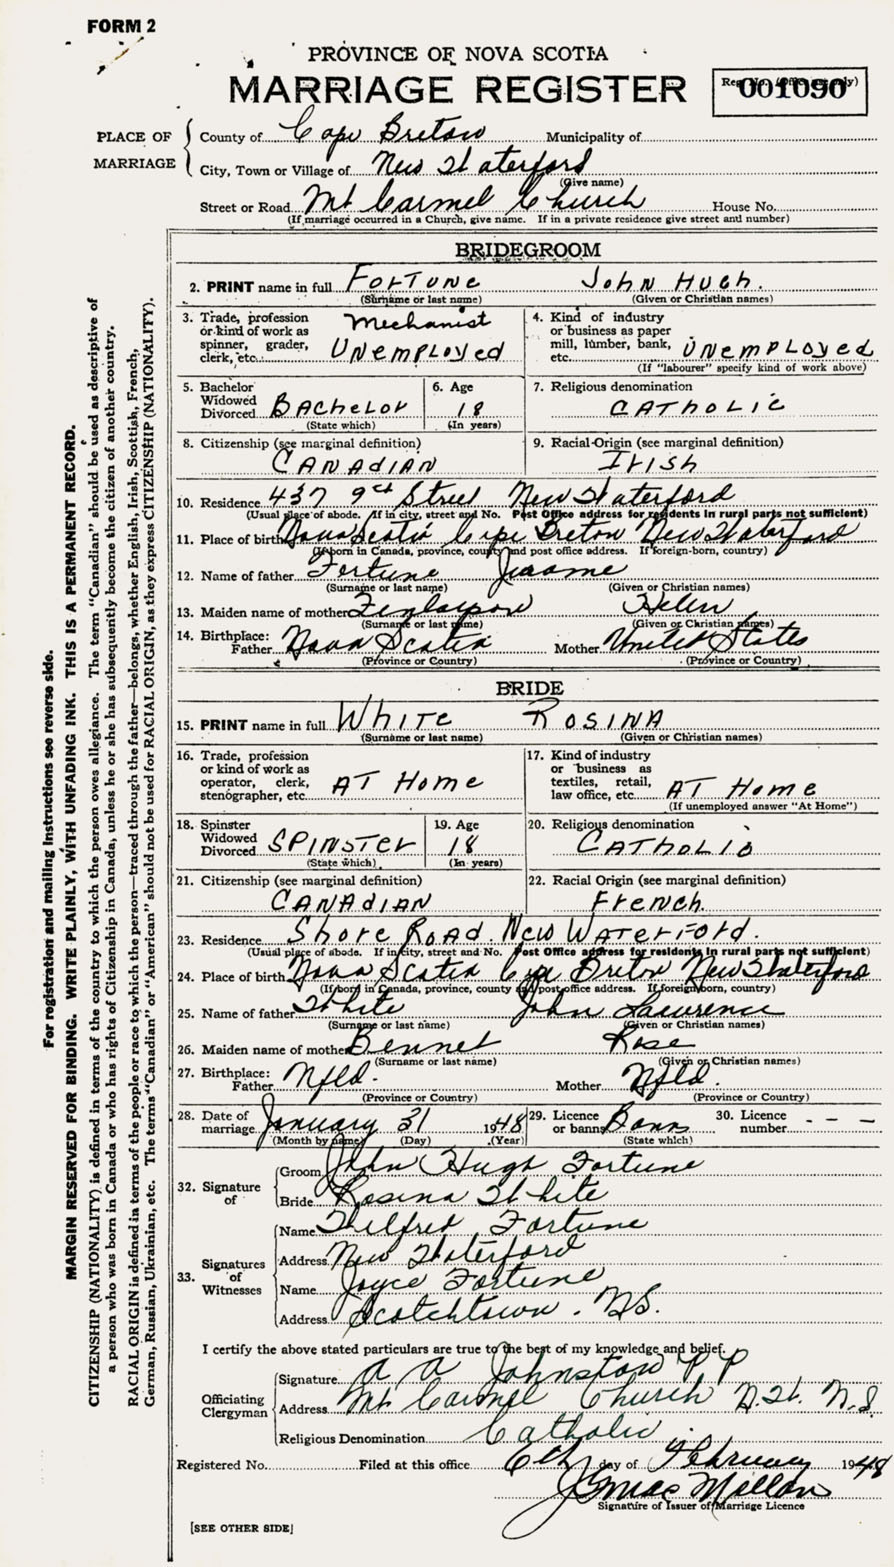 FORM 2
PROVINCE OF NOVA SCOTIA
MARRIAGE REGISTER
001090
PLACE OF MARRIAGE
County of Cape Breton Municipality of
City, Town or Village of New Waterford
(Give name)
Street or Road Mt Carmel Church House No.
(If marriage occurred in a Church, give name. If in a private residence give street and number)
BRIDEGROOM
2. PRINT name in full FORTUNE JOHN HUGH.
(Surname or last name) (Given or Christian names)
3. Trade, profession or kind of work as spinner, grader, clerk, etc. Mechanist UNEMPLOYED
4. Kind of industry or business as paper mill, lumber, bank, etc. UNEMPLOYED
(If "labourer" specify kind of work above)
5. Bachelor Widowed Divorced BACHELOR
(State which)
6. Age 18
(In years)
7. Religious denomination CATHOLIC
8. Citizenship (see marginal definition)
CANADIAN
9. Racial-Origin (see marginal definition)
IRISH
10. Residence 437 9th Street New Waterford
(Usual place of abode. If in city, street and No. Post Office address for residents in rural parts not sufficient)
11. Place of birth Nova Scotia Cape Breton New Waterford
(If born in Canada, province, county and post office address. If foreign-born, country)
12. Name of father Fortune Jerome
(Surname or last name) (Given or Christian names)
13. Maiden name of mother Helen
(Surname or last name) (Given or Christian names)
14. Birthplace: Father Nova Scotia Mother United States
(Province or Country) (Province or Country)
BRIDE
15. PRINT name in full WHITE ROSINA
(Surname or last name) (Given or Christian names)
16. Trade, profession or kind of work as operator, clerk, stenographer, etc. AT HOME
17. Kind of industry or business as textiles, retail, law office, etc. AT HOME
(If unemployed answer "At Home")
18. Spinster Widowed Divorced SPINSTER
(State which)
19. Age 18
(In years)
20. Religious denomination
CATHOLIC
21. Citizenship (see marginal definition)
CANADIAN
22. Racial Origin (see marginal definition)
FRENCH.
23. Residence SHORE ROAD. NEW WATERFORD.
(Usual place of abode. If in city, street and No. Post Office address for residents in rural parts not sufficient)
24. Place of birth Nova Scotia Cape Breton New Waterford
(If born in Canada, province, county and post office address. If foreign born, country)
25. Name of father White John Lawrence
(Surname or last name) (Given or Christian names)
26. Maiden name of mother Bennet Rose
(Surname or last name) (Given or Christian names)
27. Birthplace: Father Nfld. Mother Nfld.
(Province or Country) (Province or Country)
28. Date of marriage January 31 1948
(Month by name) (Day) (Year)
29. Licence or banns Bann
(State which)
30. Licence number - - -
32. Signature of
Groom John Hugh Fortune
Bride Rosina White
33. Signatures of Witnesses
Name Wilfred Fortune
Address New Waterford
Name Joyce Fortune
Address Scotchtown. NS.
I certify the above stated particulars are true to the best of my knowledge and belief.
Officiating Clergyman
Signature A A Johnston PP
Address Mt Carmel Church N.W. N.S
Religious Denomination Catholic
Registered No. Filed at this office 6th day of February 1948
Signature of Issuer of Marriage Licence
[SEE OTHER SIDE]
For registration and mailing instructions see reverse side.
MARGIN RESERVED FOR BINDING. WRITE PLAINLY, WITH UNFADING INK. THIS IS A PERMANENT RECORD.
CITIZENSHIP (NATIONALITY) is defined in terms of the country to which the person owes allegiance. The term "Canadian" should be used as descriptive of
a person who was born in Canada or who has rights of Citizenship in Canada, unless he or she has subsequently become the citizen of another country.
RACIAL ORIGIN is defined in terms of the people or race to which the person—traced through the father—belongs, whether English, Irish, Scottish, French,
German, Russian, Ukrainian, etc. The terms "Canadian" or "American" should not be used for RACIAL ORIGIN, as they express CITIZENSHIP (NATIONALITY).